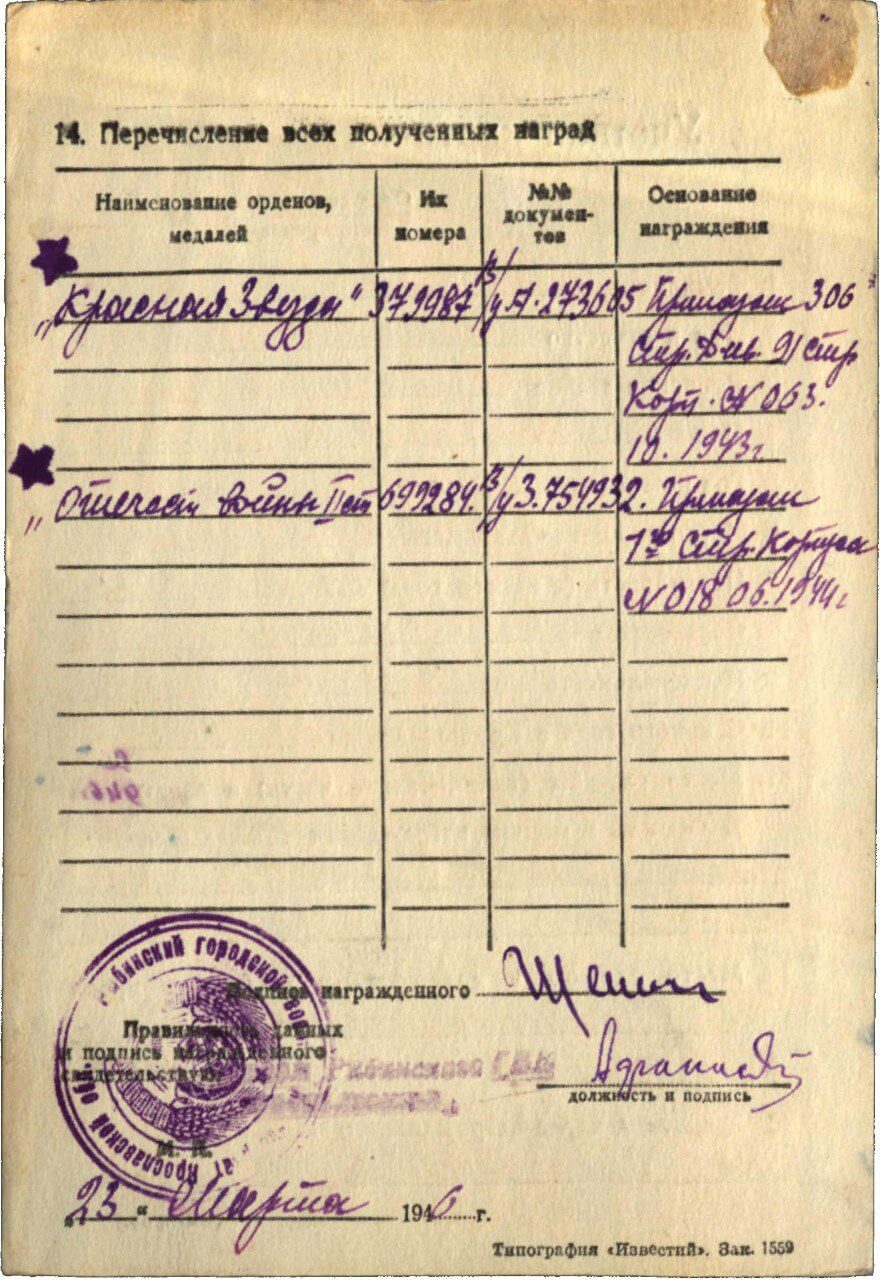 14. Перечисление всех полученных наград
Наименование орденов, медалей
Их номера
№№ документов
Основание награждения
„Красная Звезда" 379987 в/у А. 273605 Приказом 306
Стр. Див. 91 стр
Корп. № 063.
10. 1943г
„Отечеств войны II ст 699284. в/у З. 754932. Приказом
1го Стр. Корпуса
№ 018 06.1944г
Рыбинский городской вое
Подпись награжденного
Правильность данных
и подпись награжденного
свидетельствую
Рыбинского ГВК
должность и подпись
М. П.
ат Ярославской об
„23" Марта 1946 г.
Типография «Известий». Зак. 1559